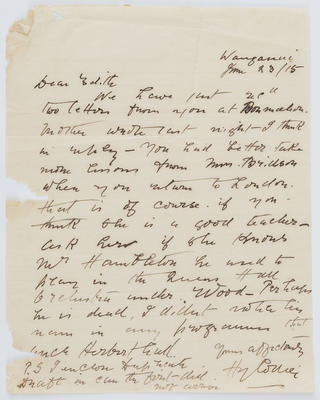 Wanganui
Jan 23/15
Dear Edith
We have just rec^d
two letters from you at
Mother wrote last night - I think
in reply - You had better take
more lessons from Mrs.
when you return to London.
that is of course if you
think she is a good teacher -
ask her if she knows
Mr Hambleton he used to
play in the Queens Hall
Orchestra under Wood - Perhaps
he is dead, I didnt notice his
name in any programmes that
Uncle Herbert had.
Yours affectionately
Hy Collier
P.S I enclose Duplicate
Draft in case the first did
not arrive